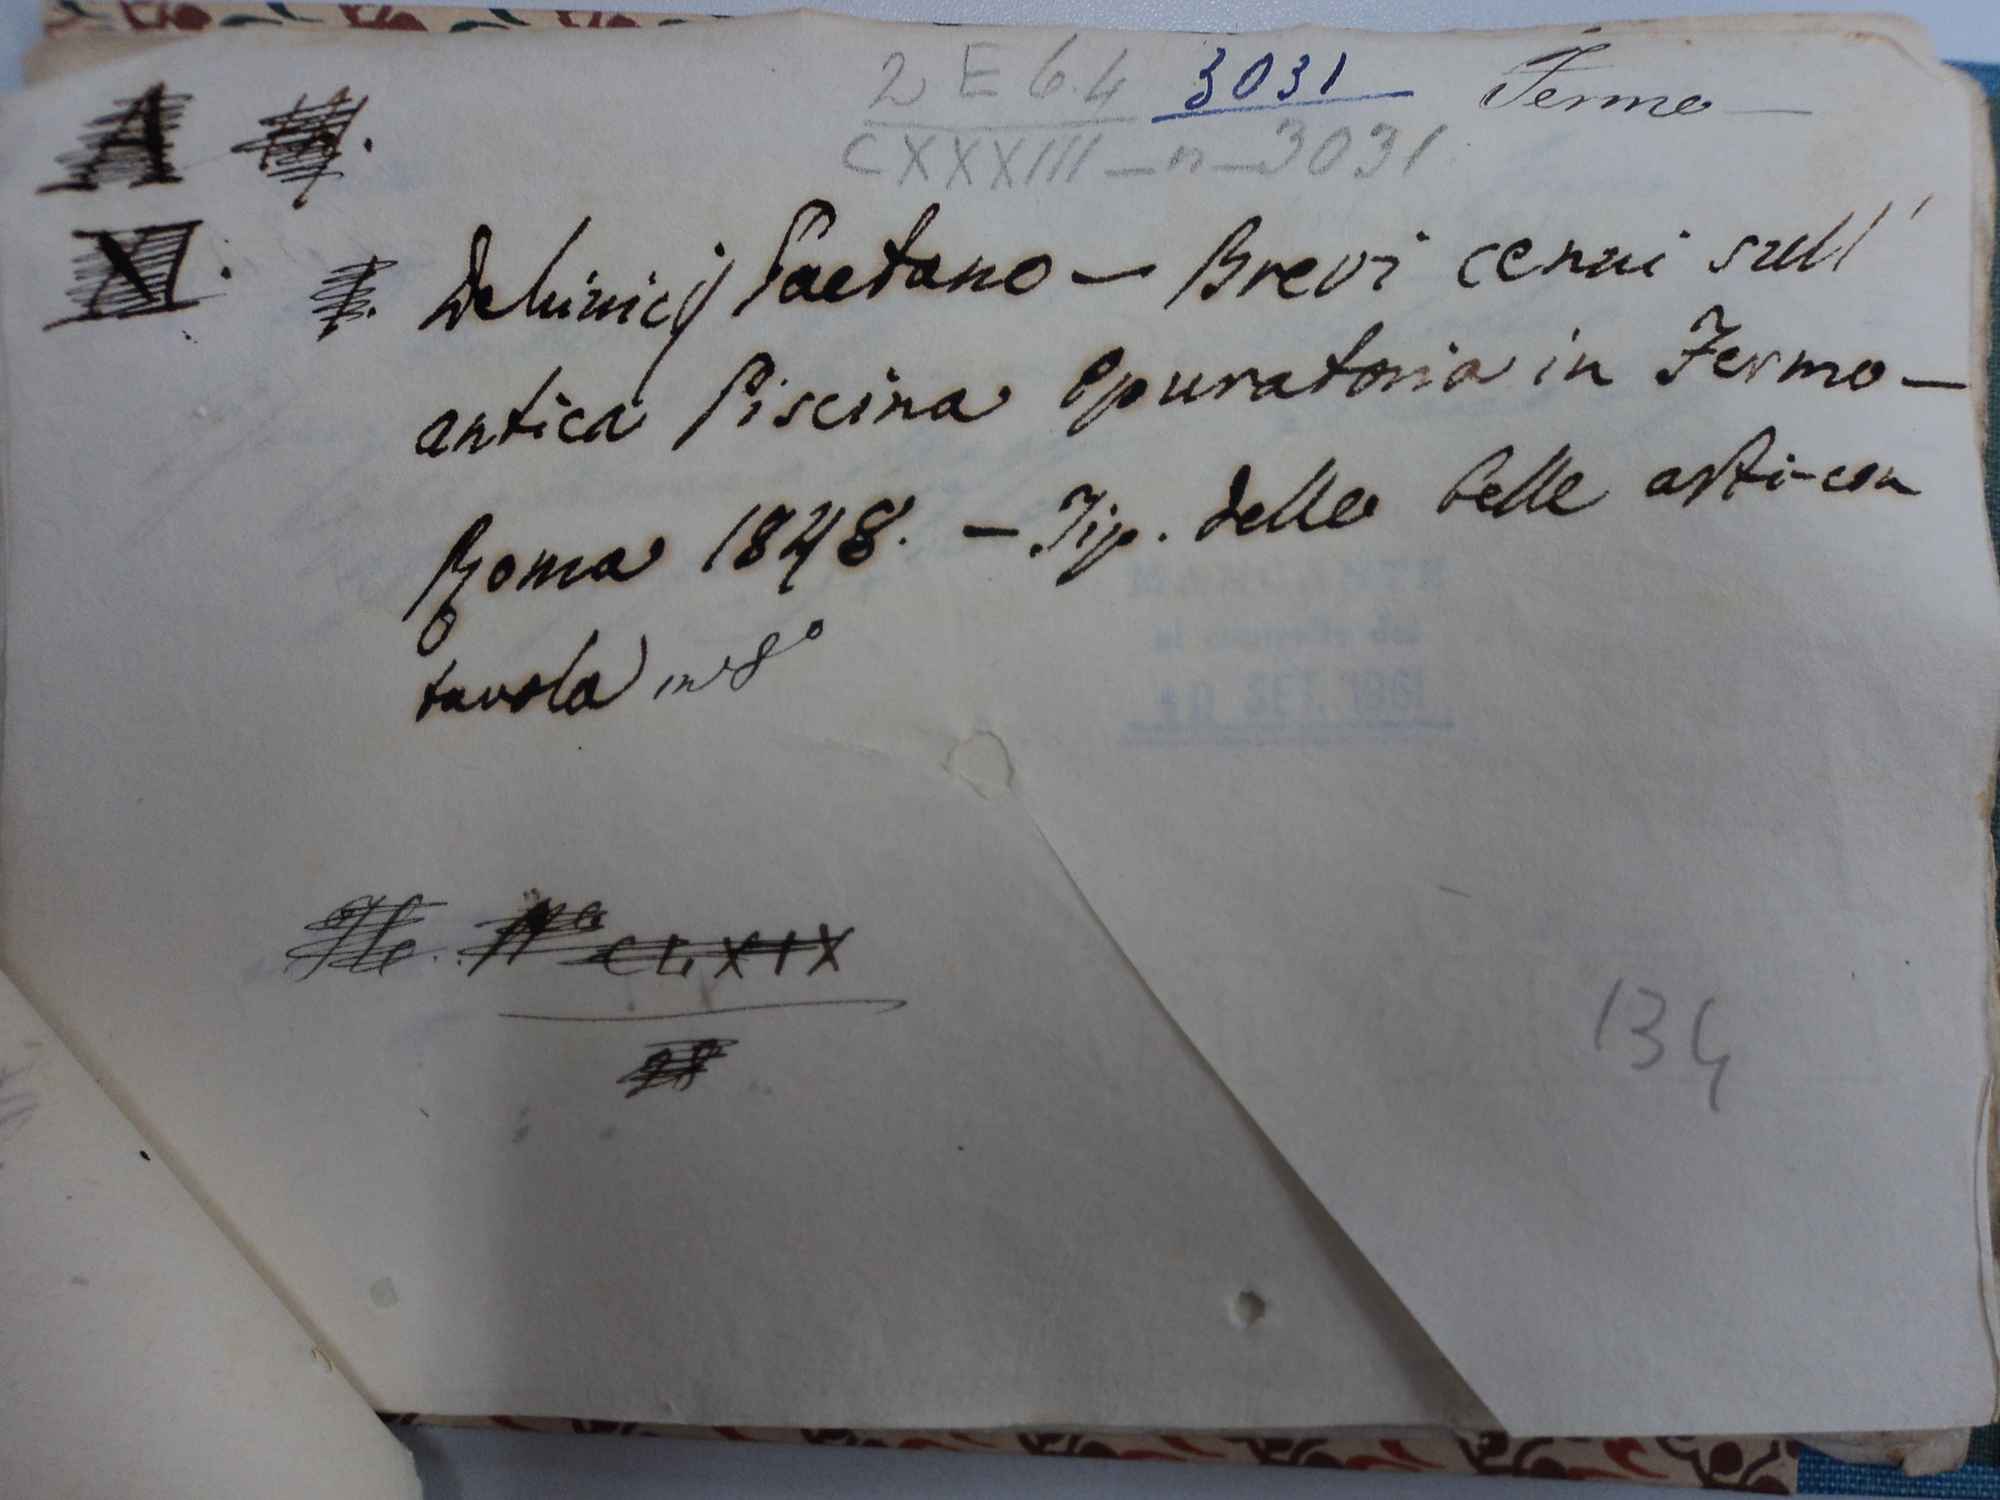 2 E 6.4 3031 Fermo
CXXXIII – n – 3031
A
XI.
I. DeMinicij Gaetano – Brevi cenni sull'
antica Piscina epuratoria in Fermo –
Roma 1848. – Tip. delle belle arti – con
tavola in 8°
CLXIX
28
134